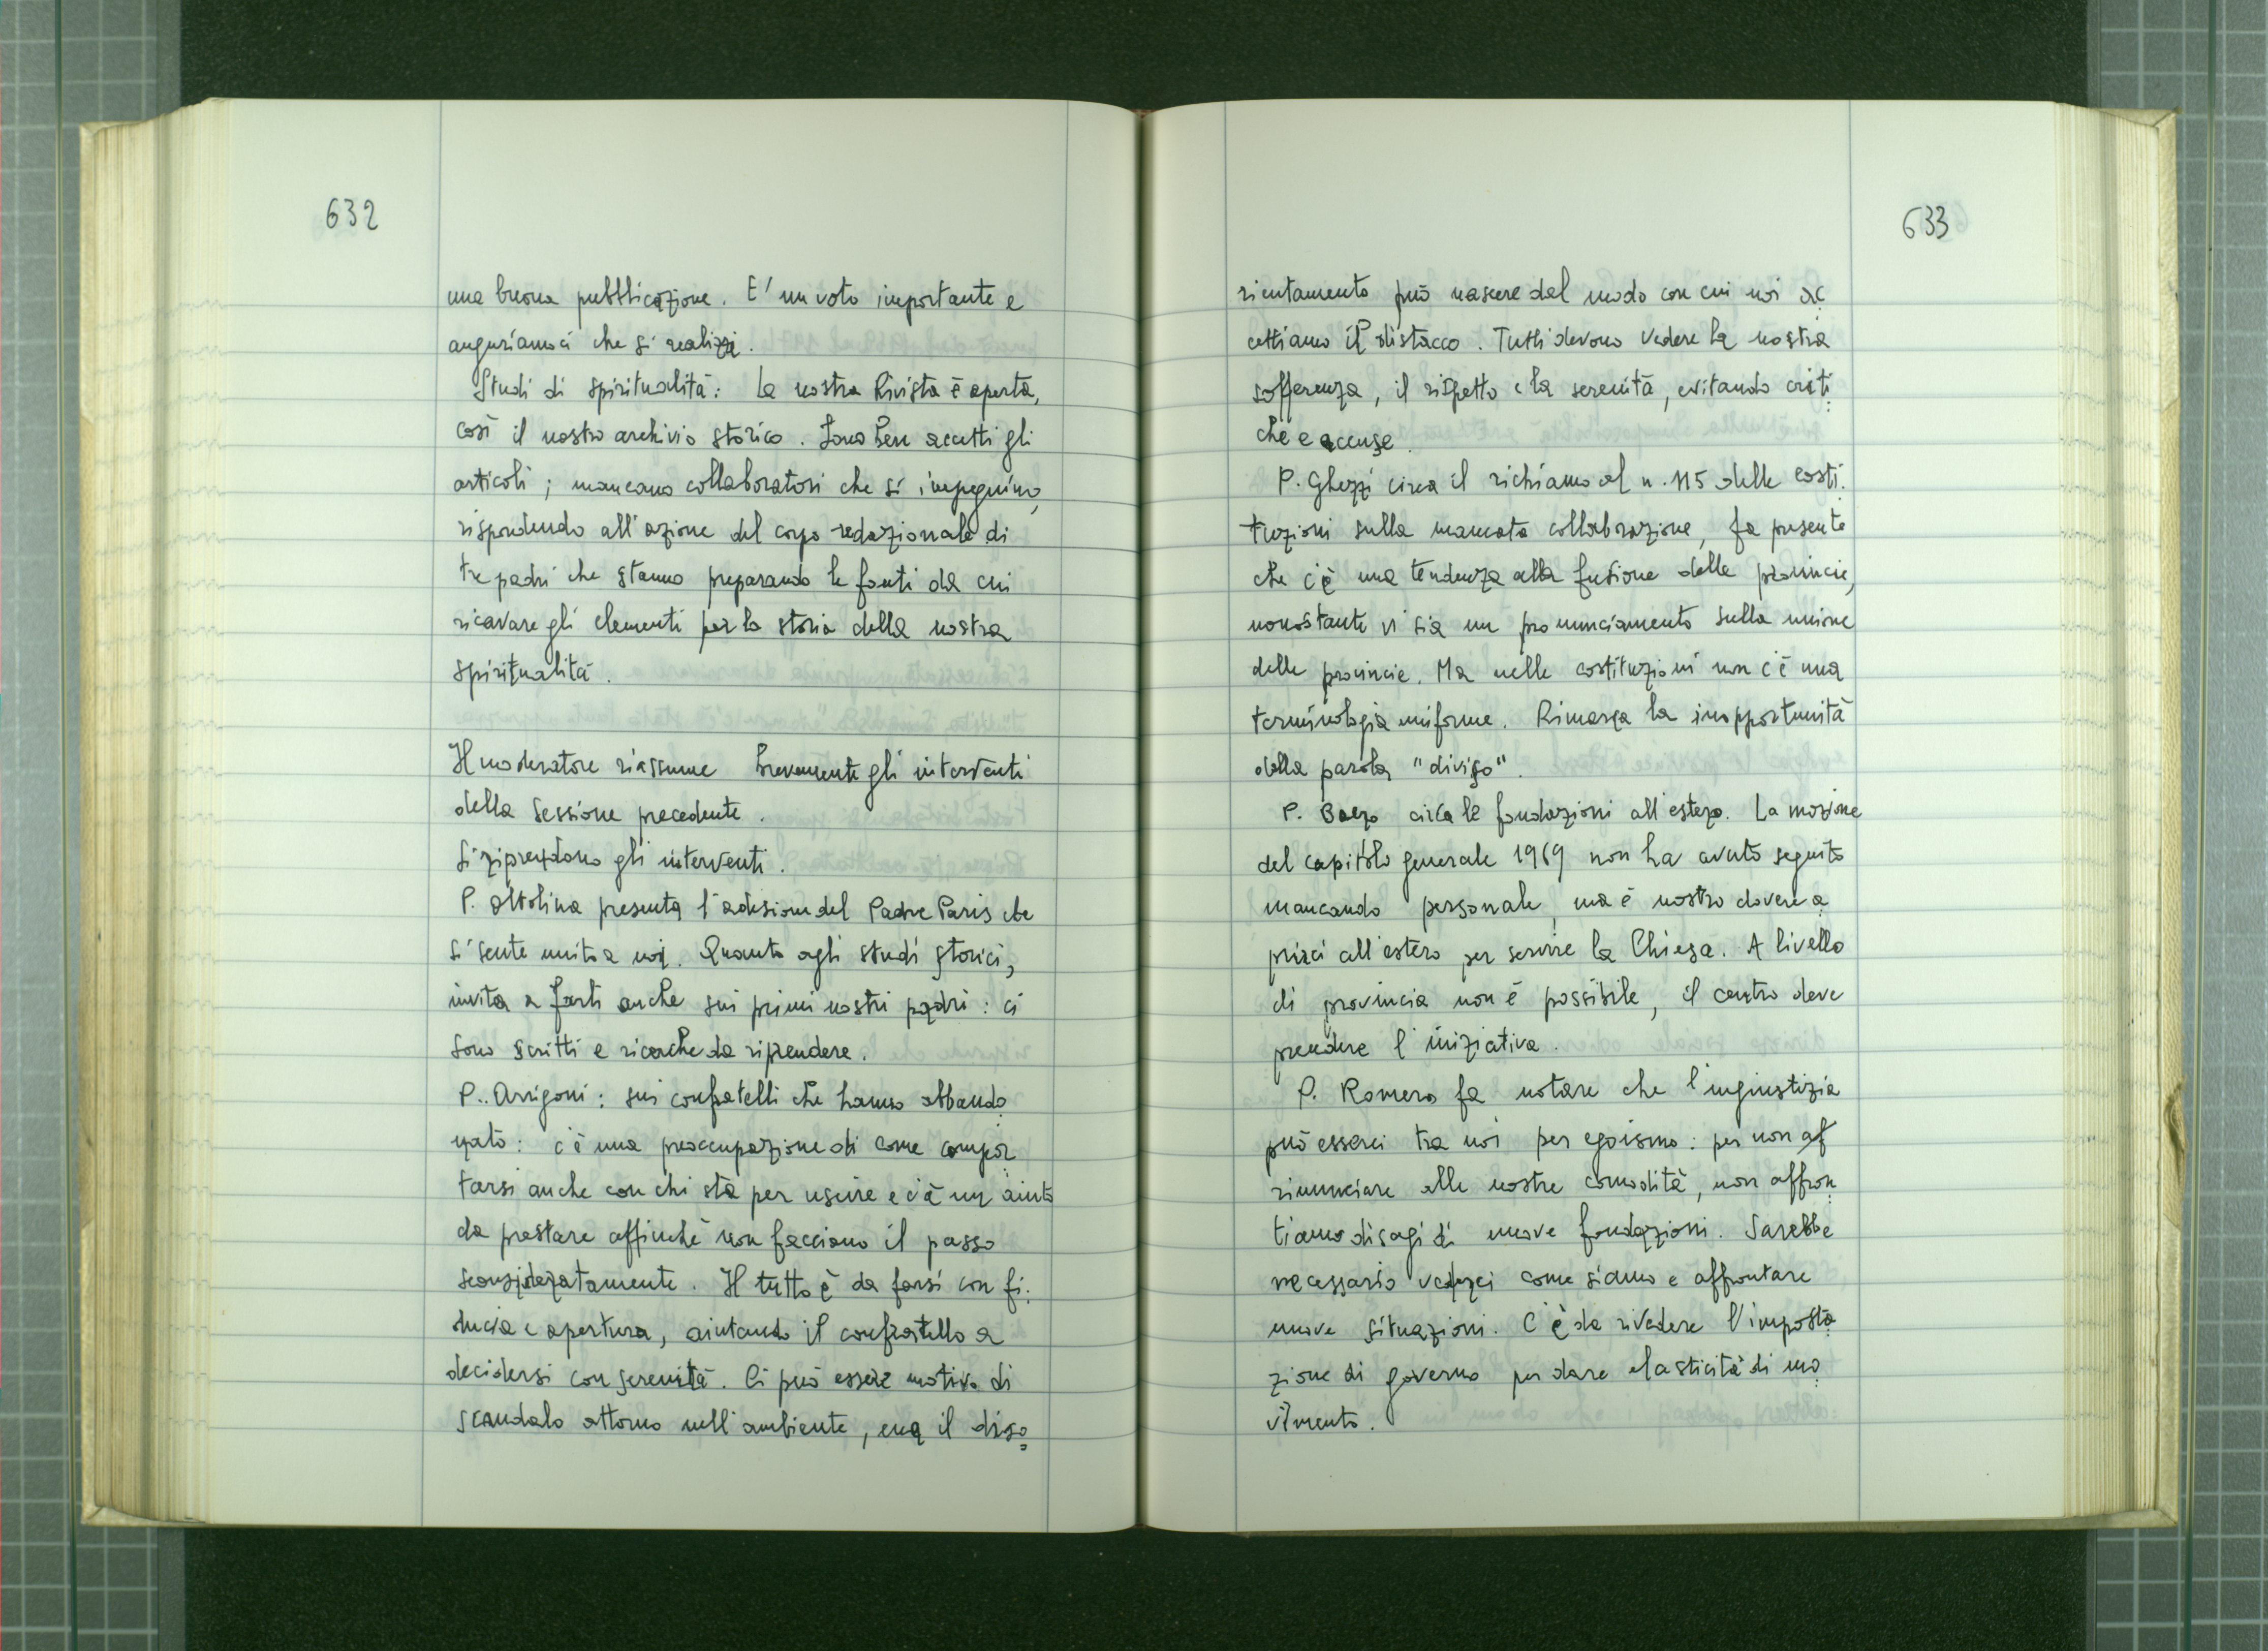 632
una buona pubblicazione. E' un voto importante e
auguriamoci che si realizzi.
Studi di spiritualità: La nostra Rivista è aperta,
così il nostro archivio storico. Sono ben accetti gli
articoli; mancano collaboratori che si impegnino,
rispondendo all'azione del corpo redazionale di
tre padri che stanno preparando le fonti da cui
ricavare gli elementi per la storia della nostra
spiritualità.
Il moderatore riassume brevemente gli interventi
della sessione precedente.
Si riprendono gli interventi.
P. Ottolina presenta l'adesione del Padre Paris che
si sente unito a noi. Quanto agli studi storici,
invita a farli anche sui primi nostri padri: ci
sono scritti e ricerche da riprendere.
P. Arrigoni: sui confratelli che hanno abbando
nato: c'è una preoccupazione di come compor
tarsi anche con chi sta per uscire e c'è un aiuto
da prestare affinchè non facciano il passo
sconsideratamente. Il tutto è da farsi con fi.
ducia e apertura, aiutando il confratello a
decidersi con serenità. Ci può essere motivo di
scandalo attorno nell'ambiente, ma il diso
633
rientamento può nascere dal modo con cui noi ac
cettiamo il distacco. Tutti devono vedere la nostra
sofferenza, il rispetto e la serenità, evitando criti
che e accuse.
P. Ghezzi circa il richiamo al n. 115 delle costi.
tuzioni sulla mancata collaborazione, fa presente
che c'è una tendenza alla fusione delle provincie,
nonostante vi sia un pronunciamento sulla unione
delle provincie. Ma nelle costituzioni non c'è una
terminologia uniforme. Rimarca la inopportunità
della parola "diviso".
P. Baezo circa le fondazioni all'estero. La mozione
del capitolo generale 1969 non ha avuto seguito
mancando personale, ma è nostro dovere a
prirci all'estero per servire la Chiesa. A livello
di provincia non è possibile, il centro deve
prendere l'iniziativa.
P. Romero fa notare che l'ingiustizia
può esserci tra noi per egoismo: per non af
rinunciare alle nostre comodità, non affron
tiamo disagi di nuove fondazioni. Sarebbe
necessario vederci come siamo e affrontare
nuove situazioni. C'è da rivedere l'imposta
zione di governo per dare elasticità di mo
vimento.